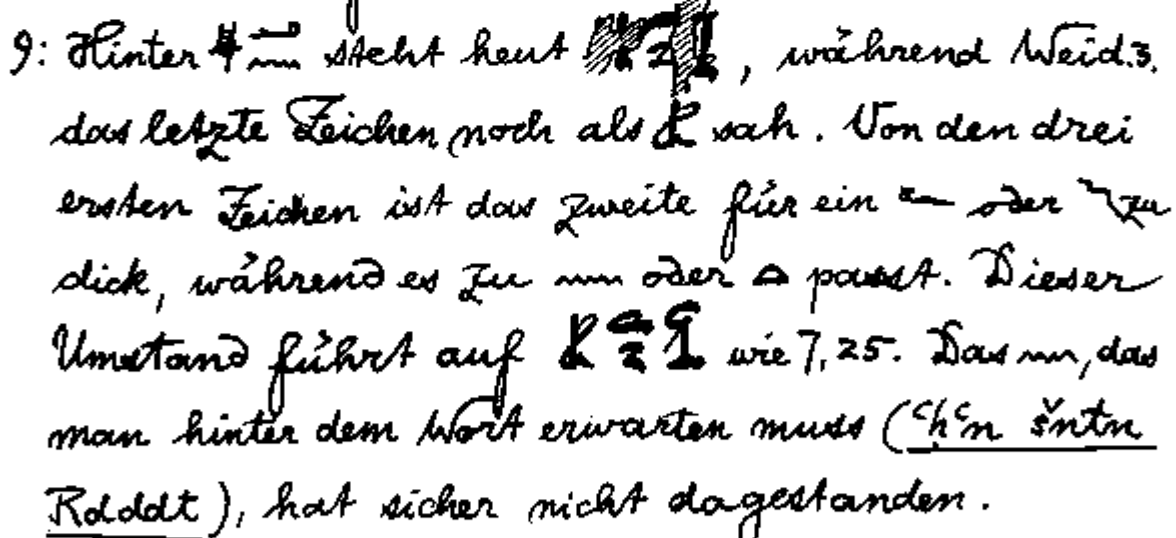 9: Hinter steht heut , während Weid.3.
das letzte Zeichen noch als sah. Von den drei
ersten Zeichen ist das zweite für ein oder zu
dick, während es zu oder passt. Dieser
Umstand führt auf wie 7,25. Das , das
man hinter dem Wort erwarten muss (ꜥḥꜥn šntn
Rdddt), hat sicher nicht dagestanden.